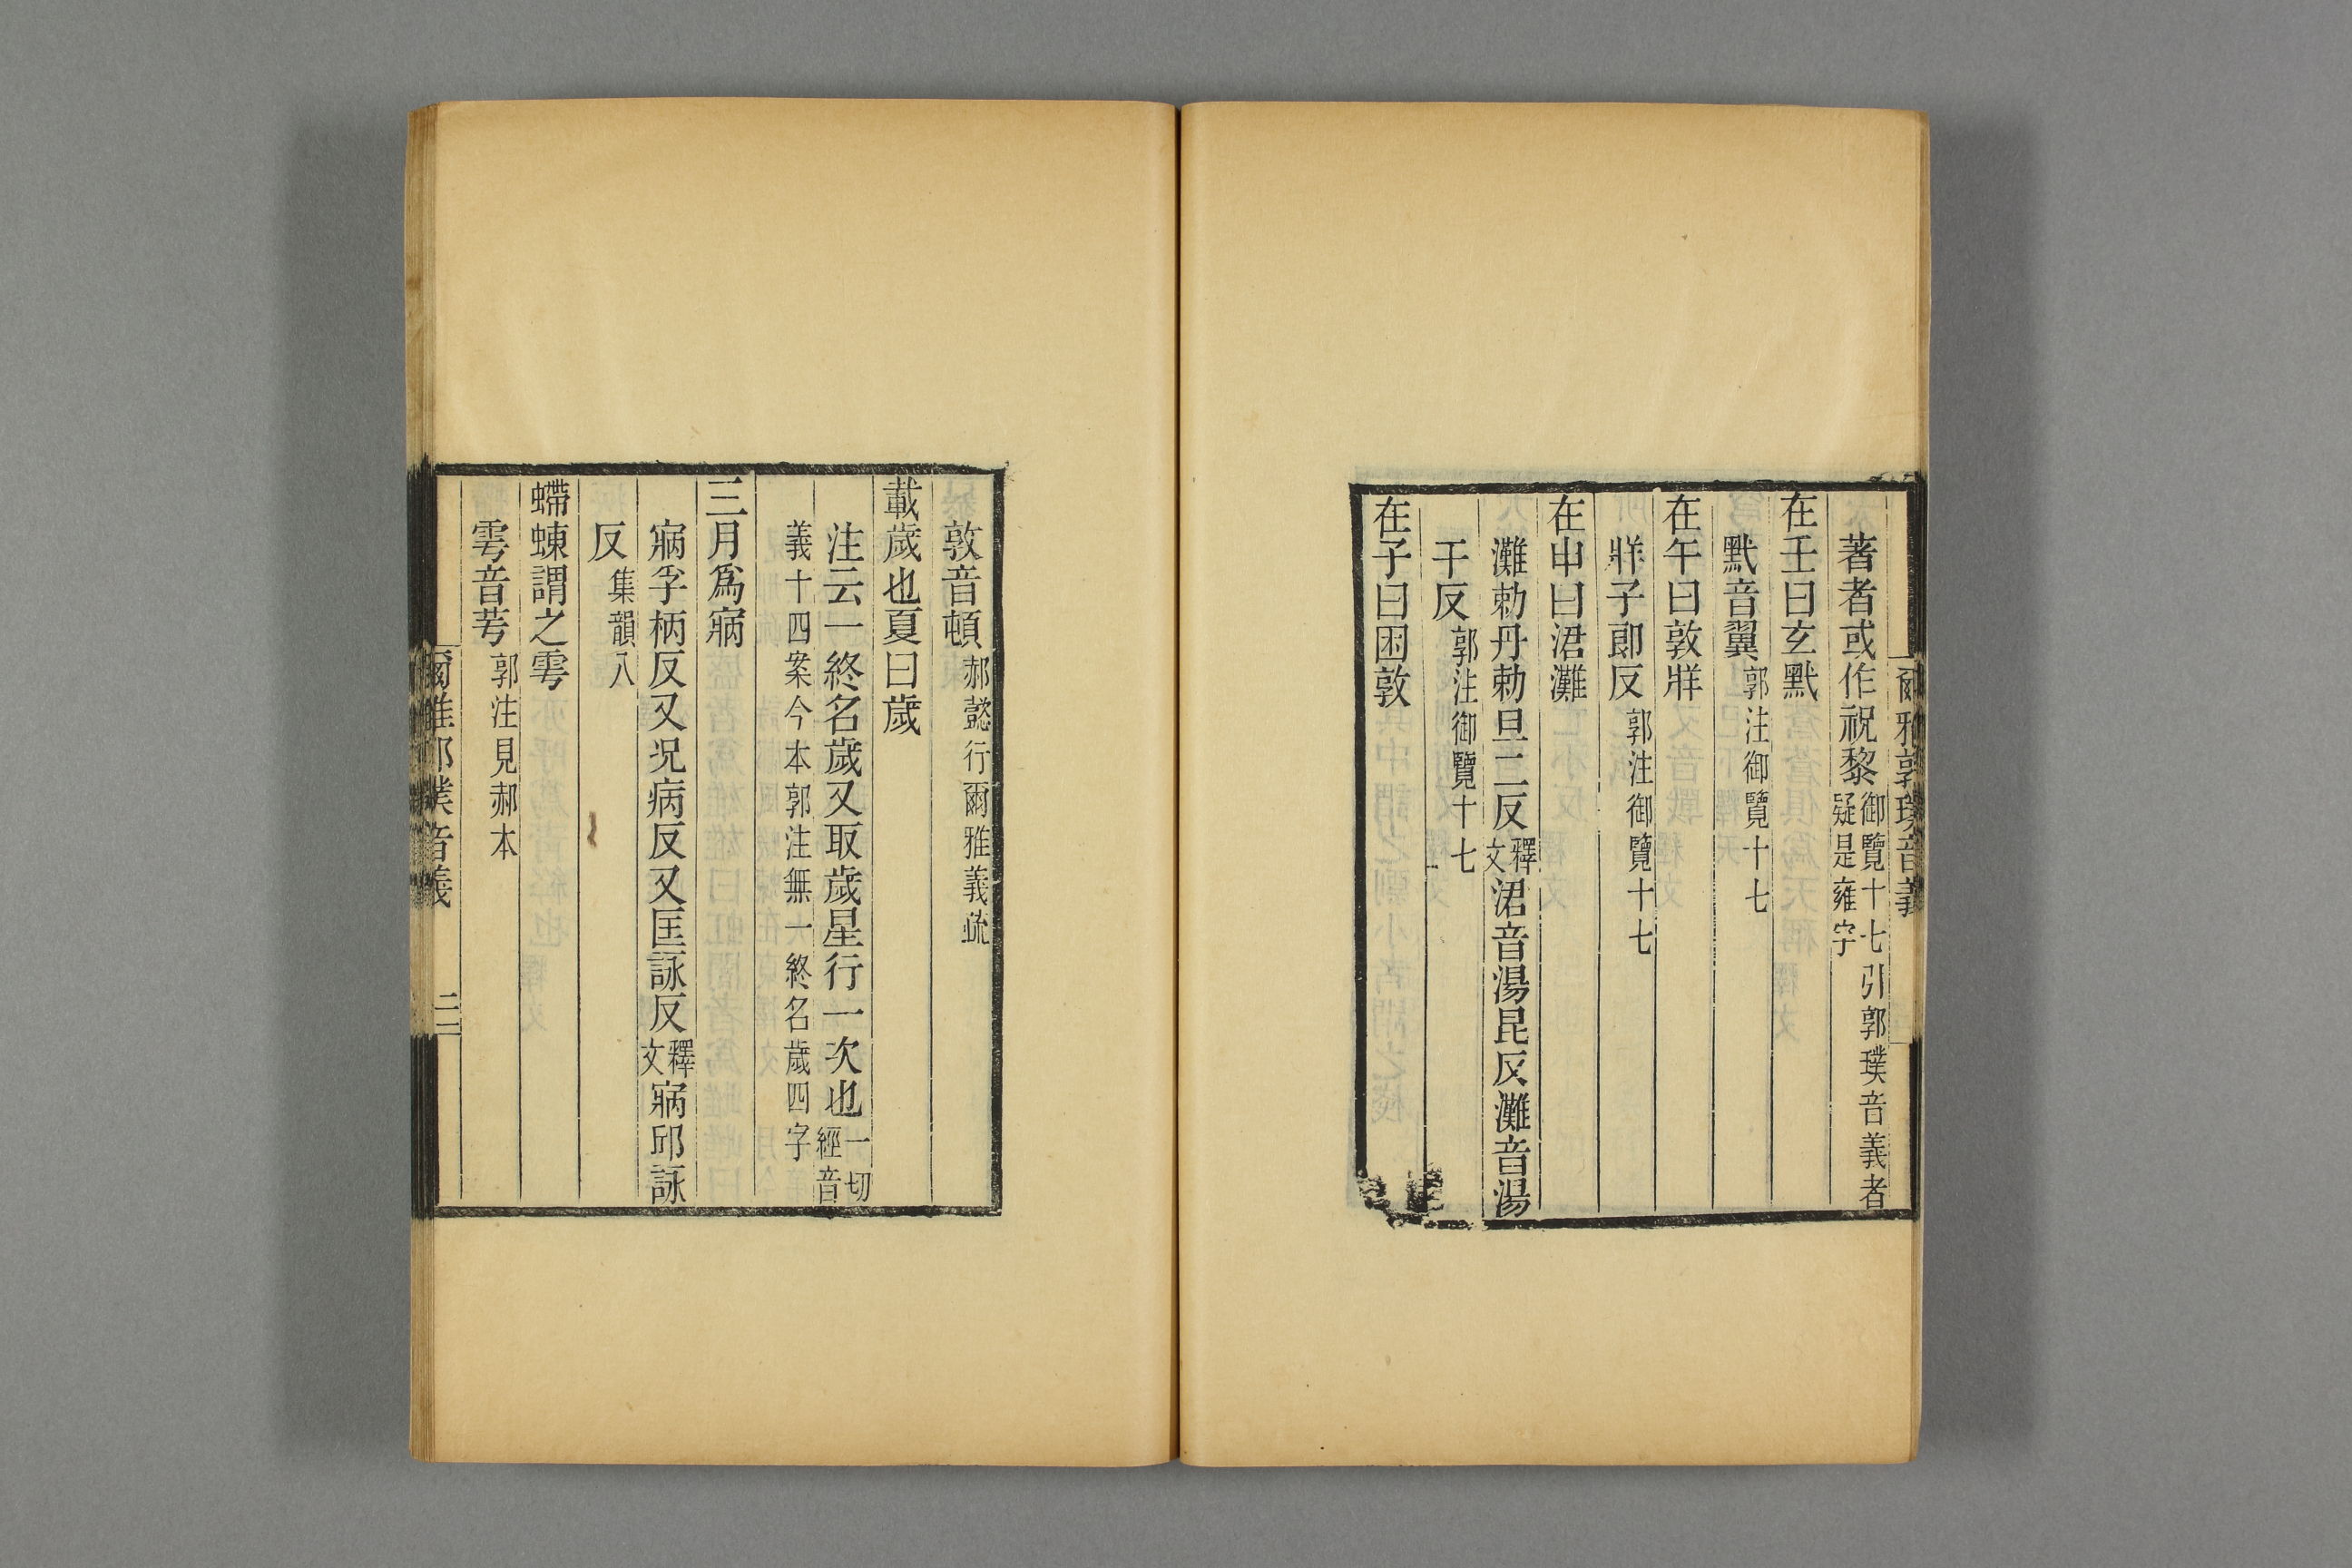 爾雅郭璞音義
著者或作祝黎御覽十七引郭璞音義者疑是雍字
在壬曰玄黓
黓音翼郭注御覽十七
在午曰敦牂
牂子郎反郭注御覽十七
在申曰涒灘
灘勑丹勑旦二反釋文涒音湯昆反灘音湯
干反郭注御覽十七
在子曰困敦
敦音頓郝懿行爾雅義疏
載歲也夏曰歲
注云一終名歲又取歲星行一次也一切經音
義十四案今本郭注無一終名歲四字
三月爲寎
寎孚柄反又況病反又匡詠反釋文寎邱詠
反集韻八
螮蝀謂之雩
雩音芌郭注見郝本
爾雅郭璞音義 二